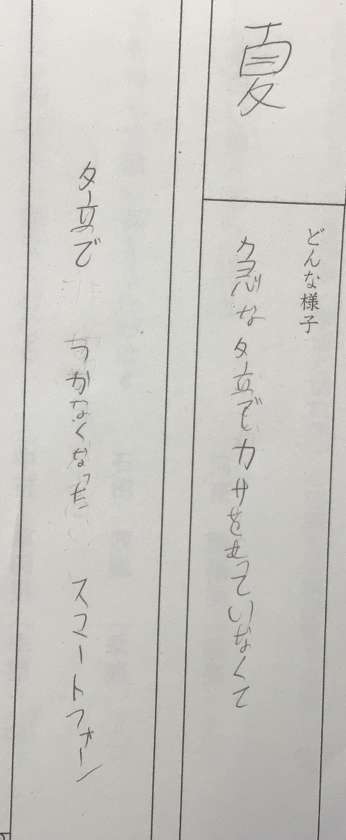 夏
どんな様子
急な夕立でカサをもっていなくて
夕立で つかなくなった スマートフォーン